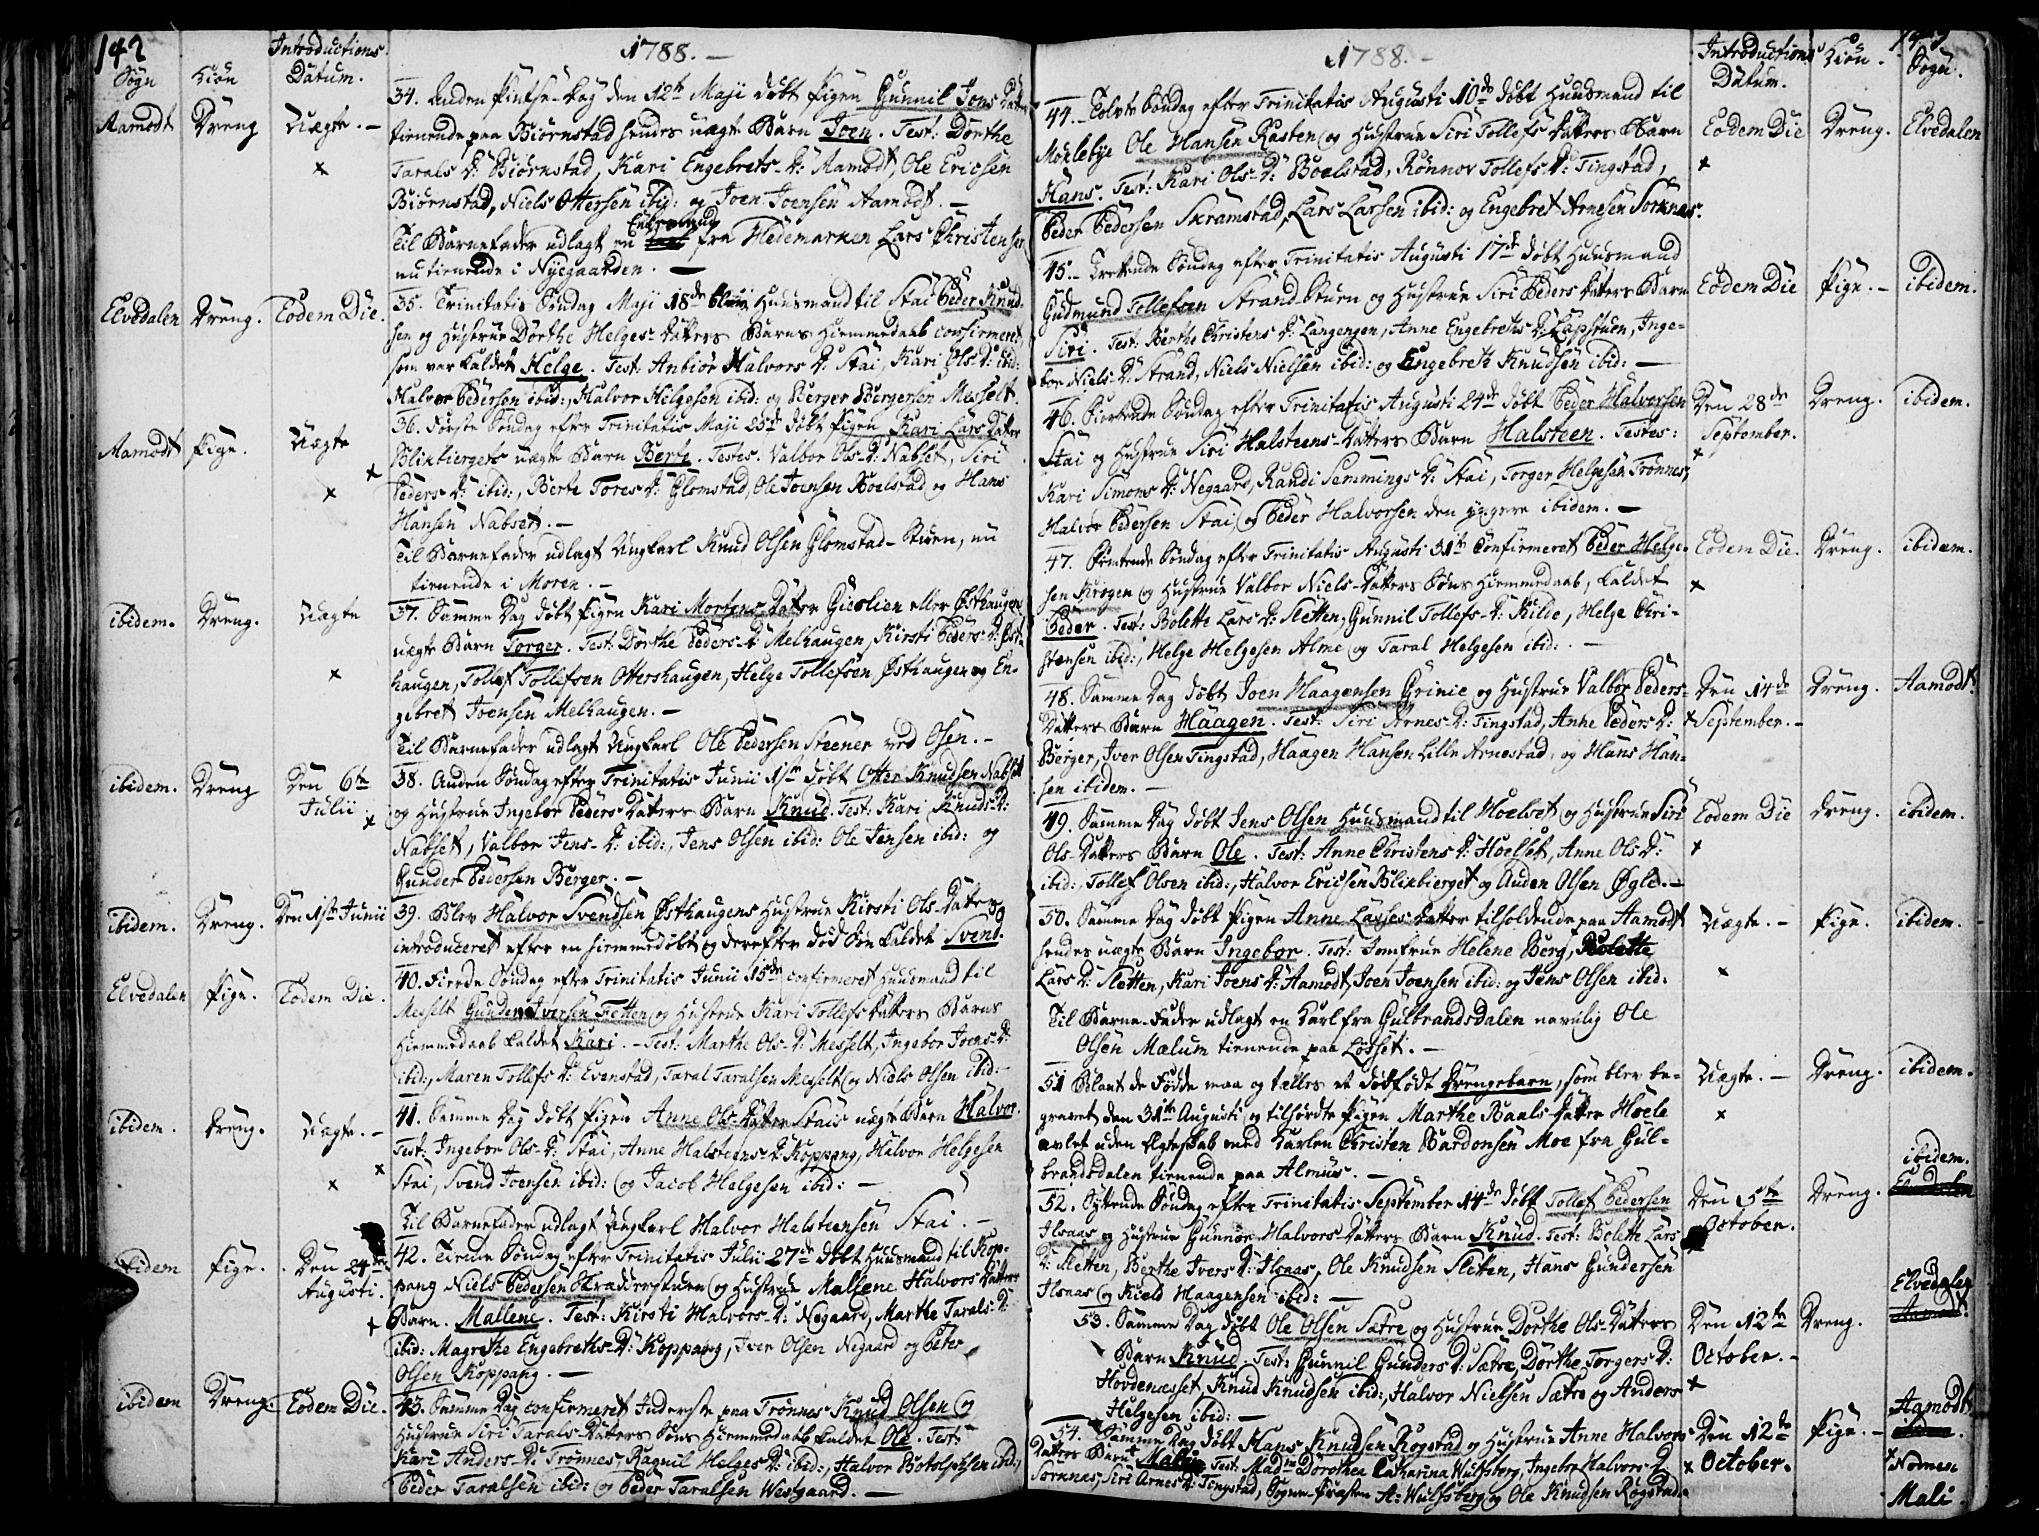 142
1788.
Sogn
Kiön
Introductions
Datum.
Aamodt Dreng Uægte. -
34. Anden Pintse-Dag den 12te Maji döbt Pigen Gunnil Jons Datter
tienende paa Biörnstad hendes uægte Barn Joen. Test: Dorthe
Tarals D: Biörnstad, Kari Engebrets-D: Aamodt, Ole Ericsen
Biörnstad, Niels Ottersen ibid: og Joen Joensen Aamodt. -
Til Barnefader udlagt en Enkemand fra Hedemarken Lars Christensen
nu tienende i Nyegaarden. -
Elvedalen Dreng. Eodem Die.
35. Trinitatis Söndag Maji 18de blev Huusmand til Stai Peder Knud-
sen og Hustrue Dorthe Helges-Datters Barns Hiemmedaab confirmeret
som var kaldet Helge. Test: Anbiör Halvors D: Stai, Kari Ols-D: ibid:
Halvor Pedersen ibid:, Halvor Helgesen ibid: og Berger Bergersen Messelt.
Aamodt Pige. Uægte
36. Förste Söndag efter Trinitatis Maji 25de döbt Pigen Kari Lars Datter
Blikbiergets uægte Barn Berte. Testes. Valbor Ols-D: Nabset, Siri
Peders D: ibid:, Berte Tores D: Glomstad, Ole Joensen Boelstad og Hans
Hansen Nabset. -
Til Barnefader udlagt Ungkarl Knud Olsen Glomstad-Stuen, nu
tienende i Moren. -
ibidem. Dreng. Uægte
37. Samme Dag döbt Pigen Kari Mortens Datter Gieslien eller Østhaugen
uægte Barn Torger. Test: Dorthe Peders-D: Melhaugen, Kirsti Peders D: Øst-
haugen, Tollef Tollefsen Ottershaugen, Helge Tollefsen Østhaugen og En-
gebret Joensen Melhaugen. -
Til Barnefader udlagt Ungkarl Ole Pedersen Steener ved Osen. -
ibidem. Dreng Den 6te Julii
38. Anden Söndag efter Trinitatis Junii 1ste döbt Otter Knudsen Nabset
og Hustrue Ingebor Peders Datters Barn Knud. Test: Kari Knuds D:
Nabset, Valbor Jens-D: ibid:, Jens Olsen ibid: Ole Jensen ibid: og
Gunder Pedersen Berger. -
ibidem. Dreng. Den 1ste Junii
39. Blev Halvor Svendsen Østhaugens Hustrue Kirsti Ols-Datter
introduceret efter en hiemmedöbt og derefter död Sön kaldet Svend.
Elvedalen Pige. Eodem Die.
40. Fierde Söndag efter Trinitatis Junii 15de confirmeret Huusmand til
Messelt Gunder Iversen Fetten og Hustrue Kari Tollefs Datters Barns
Hiemmedaab kaldet Kari. - Test: Marthe Ols-D: Messelt, Ingebor Joens-D:
ibid:, Maren Tollefs D: Evenstad, Taral Taralsen Messelt og Niels Olsen ibid:
ibidem. Dreng. Uægte. -
41. Samme Dag döbt Pigen Anne Ols-Datter Stais uægte Barn Halvor.
Test: Ingebor Ols-D: Stai, Anne Halsteens D: Koppang, Halvor Helgesen
Stai, Svend Joensen ibid: og Jacob Helgesen ibid: -
Til Barnefader udlagt Ungkarl Halvor Halsteensen Stai. -
ibidem Pige. Den 24de Augusti.
42. Tiende Söndag efter Trinitatis Julii 27de döbt Huusmand til Kop-
pang Niels Pedersen Skradderstuen og Hustrue Mallene Halvors Datters
Barn. Mallene. Test: Kirsti Halvors-D: Negaard, Marthe Tarals-D:
ibid: Magrethe Engebreths-D: Koppang, Iver Olsen Negaard og Peter
Olsen Koppang. -
ibidem Dreng. Eodem Die.
43. Samme Dag confirmeret Inderste paa Trönnes Knud Olsen og
Hustrue Siri Tarals-Datters Söns Hiemmedaab kaldet Ole. Test:
Kari Anders-D: Trönnes, Ragnil Helges D: ibid:, Halvor Botolphsen ibid:,
Peder Taralsen ibid: og Peder Taralsen Westgaard. -
1788. -
Introductions
Datum.
Kiön.
Sogn.
44. Tolvte Söndag efter Trinitatis Augusti 10de döbt Huusmand til
Möklebye Ole Hansen Rasten og Hustrue Siri Tollefs Datters Barn
Hans. Test: Kari Ols-D: Boelstad, Rönnov Tollefs D: Tingstad,
Peder Pedersen Skramstad, Lars Larsen ibid: og Engebret Arnesen Sorknes.
Eodem Die Dreng. Elvedalen
45. Trettende Söndag efter Trinitatis Augusti 17de döbt Huusmand
Gudmund Tollefsen Strand-Stuen og Hustrue Siri Peders Datters Barn
Siri. Test: Berthe Christens D: Langengen, Anne Engebreths D: Kapstuen, Inge-
bor Niels-D: Strand, Niels Nielsen ibid: og Engebreth Knudsen ibid: -
Eodem Die Pige. - ibidem.
46. Fiortende Söndag efter Trinitatis Augusti 24de döbt Peder Halvorsen
Stai og Hustrue Siri Halsteens-Datters Barn Halsteen. Testes:
Kari Simons D: Negaard, Randi Semmings D: Stai, Torger Helgesen Trönnes,
Halvor Pedersen Stai og Peder Halvorsen den yngere ibidem. -
Den 28de September. Dreng. ibidem.
47. Femtende Söndag efter Trinitatis Augusti 31te Confirmeret Peder Helge-
sen Krogen og Hustrue Valbor Niels-Datters Söns Hiemmedaab, kaldet
Peder. Test: Bolette Lars D: Sletten, Gunnil Tollefs-D: Kilde, Helge Chri-
stensen ibid:, Helge Helgesen Alme og Taral Helgesen ibid: -
Eodem Die. Dreng. ibidem.
48. Samme Dag döbt Joen Haagensen Grinie og Hustrue Valbor Peders-
Datters Barn Haagen. Test: Siri Arnes D: Tingstad, Anne Peders D:
Berger, Iver Olsen Tingstad, Haagen Hansen Lille Arnestad, og Hans Han-
sen ibidem. -
Den 14de September. - Dreng. Aamodt.
49. Samme Dag döbt Jens Olsen Huusmand til Hoelset og Hustrue Siri
Ols-Datters Barn Ole. Test: Anne Christens D: Hoelset, Anne Ols D:
ibid:, Tollef Olsen ibid:, Halvor Ericsen Blikbierget og Auden Olsen Øgle. -
Eodem Die Dreng. ibidem.
50. Samme Dag döbt Pigen Anne Larses Datter tilholdende paa Aamodt
hendes uægte Barn Ingebor. Test: Jomfrue Helene Berg, Bolette
Lars D: Sletten, Kari Joens D: Aamodt, Joen Joensen ibid: og Jens Olsen ibid:
Til Barne-Fader udlagt en Karl fra Gulbrandsdalen navnlig Ole
Olsen Mælum tienende paa Løsset. -
Uægte. - Pige. ibidem.
51 Blant de Födde maa og tælles et dödfödt Drengebarn, som blev be-
gravet den 31te Augusti og tilhörte Pigen Marthe Baals-Datter Hoele
avlet uden Ægteskab med Karlen Christen Bardonsen Moe fra Gul-
brandsdalen tienende paa Almus. -
Uægte. - Dreng. ibidem.
52. Syttende Söndag efter Trinitatis September 14de döbt Tollef Pedersen
Ilsaas og Hustrue Gunnor Halvors Datters Barn Knud. Test: Bolette Lars
D: Sletten, Berthe Ivers D: Ilsaas, Ole Knudsen Sletten, Hans Gundersen
Ilsaas og Kield Haagensen ibid: -
Den 5te October. Dreng. ibidem.
53. Samme Dag döbt Ole Olsen Sætre og Hustrue Dorthe Ols-Datters
Barn Knud. Test: Gunnil Gunders D: Sætre, Dorthe Torgers D:
Hovdenæsset, Knud Knudsen ibid:, Halvor Nielsen Sætre og Anders
Helgesen ibid: -
Den 12te October. - Dreng. Elvedalen
54. Samme Dag döbt Hans Knudsen Rogstad og Hustrue Anne Halvors
Datters Barn Mali. Test: Madm Dorothea Catharina Wulfsberg, Ingebor Halvors D:
Sorknes, Siri Arnes D: Tingstad, Sogne-Præsten A: Wulfsberg og Ole Knudsen Rogstad.
Den 12te October. Pige. - Aamodt
Nomen
Mali.